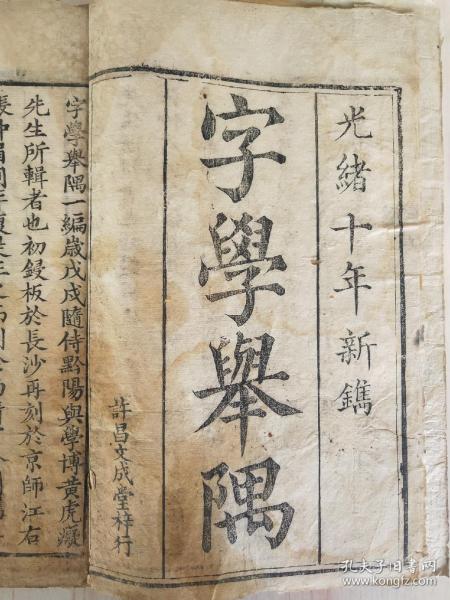 光緒十年新鐫
字學舉隅
許昌文成堂梓行
字學舉隅一編歲戊戌隨侍黔陽與學博黃虎癡
先生所輯者也初鋟板於長沙再刻於京師江右
孔夫子旧书网
www.kongfz.com